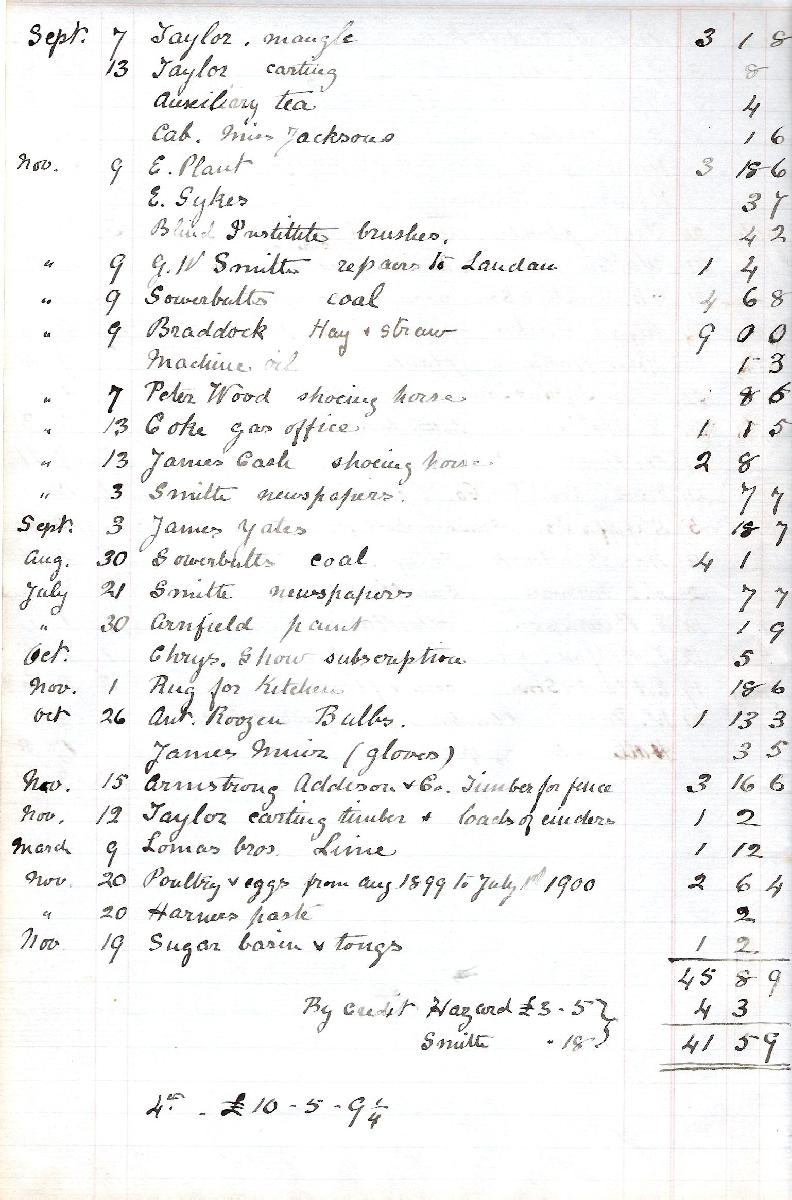 Sept. 7 Taylor. mangle 3 1 8
13 Taylor carting 8
Auxiliary tea 4
Cab. Miss Jacksons 1 6
Nov. 9 E. Plant 3 18 6
E. Sykes 3 7
Blind Institute brushes. 4 2
" 9 G. W Smith repairs to Landau 1 4
" 9 Sowerbutts coal 4 6 8
" 9 Braddock Hay & straw 9 0 0
Machine oil 1 3
" 7 Peter Wood shoeing horse 8 6
" 13 Coke gas office 1 1 5
" 13 James Cash shoeing horse 2 8
" 3 Smith newspapers. 7 7
Sept. 3 James Yates 18 7
Aug. 30 Sowerbutts coal 4 1
July 21 Smith newspapers 7 7
" 30 Arnfield paint 1 9
Oct. Chrys. Show subscription 5
Nov. 1 Rug for Kitchen 18 6
Oct 26 Ant. Roozen Bulbs. 1 13 3
James Muir (gloves) 3 5
Nov. 15 Armstrong Addison & Co. Timber for fence 3 16 6
Nov. 12 Taylor carting timber & loads of cinders 1 2
March 9 Lomas bros. Lime 1 12
Nov. 20 Poultry & eggs from Aug 1899 to July 1st 1900 2 6 4
" 20 Harness paste 2
Nov 19 Sugar basin & tongs 1 2.
45 8 9
By credit Hazard £3-5 } 4 3
Smith - 18 } 41 5 9
4th - £10-5-9 1/4